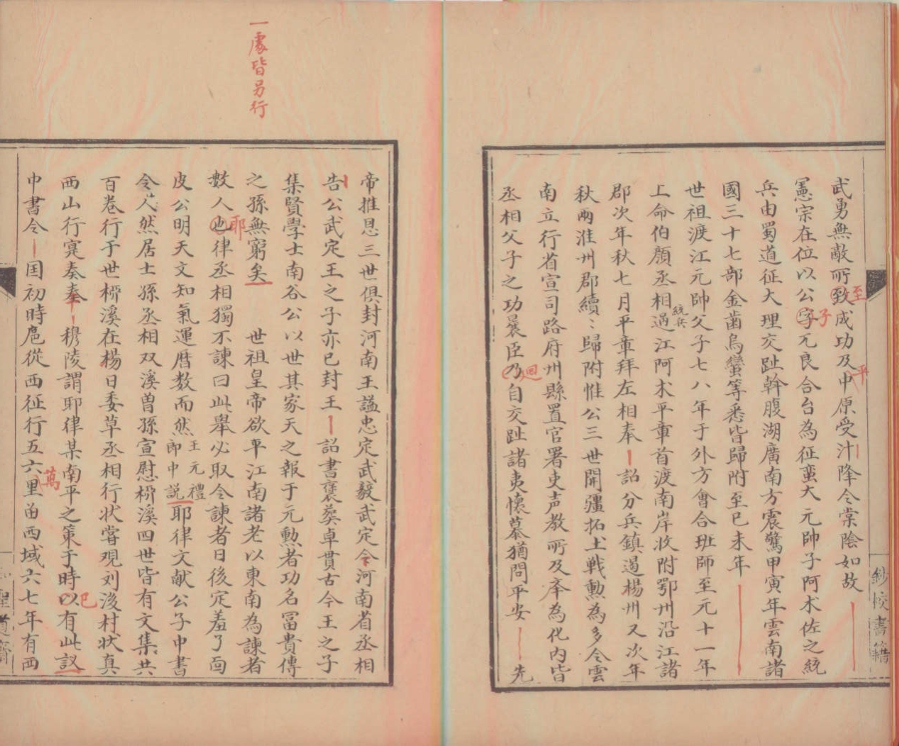 武勇無敵所致成功及中原受汴降令棠陰如故
至
平
憲宗在位以公子元良合台為征蛮大元帥子阿木佐之統
子
兵由蜀道征大理交趾幹腹湖廣南方震驚甲寅年雲南諸
國三十七部金齒烏蠻等悉皆歸附至已未年
世祖渡江元帥父子七八年于外方會合班師至元十一年
上命伯顏丞相過江阿术平章首渡南岸收附鄂州沿江諸
統兵
郡次年秋七月平章拜左相奉詔分兵鎮遏楊州又次年
秋兩淮州郡續〻歸附惟公三世開疆拓土戰勳為多今雲
南立行省宣司路府州縣置官署吏声教所及夲為化内皆
丞相父子之功晨臣乃自交趾諸夷懷慕猶問平安先
迴
一處皆另行
帝推恩三世俱封河南王謚忠定武毅武定今河南省丞相
告公武定王之子亦已封王詔書褒奬卓貫古今王之子
集賢學士南谷公以世其家天之報于元勳者功名冨貴傳
之孫無窮矣　世祖皇帝欲平江南諸老以東南為諫者
數人也律丞相獨不諫曰此舉必取令諫者日後定羞了面
耶
皮公明天文知氣運曆数而然王元禮郎中説耶律文献公子中書
令公然居士孫丞相双溪曽孫宣慰栁溪四世皆有文集共
百卷行于世栁溪在楊日委草丞相行状嘗观刘浚村状真
西山行寔奏奉穆陵謂耶律某南平之策于時以有此説
巳
中書令国初時扈從西征行五六里畄西域六七年有西
萬
鈔校書籍
聖道齋